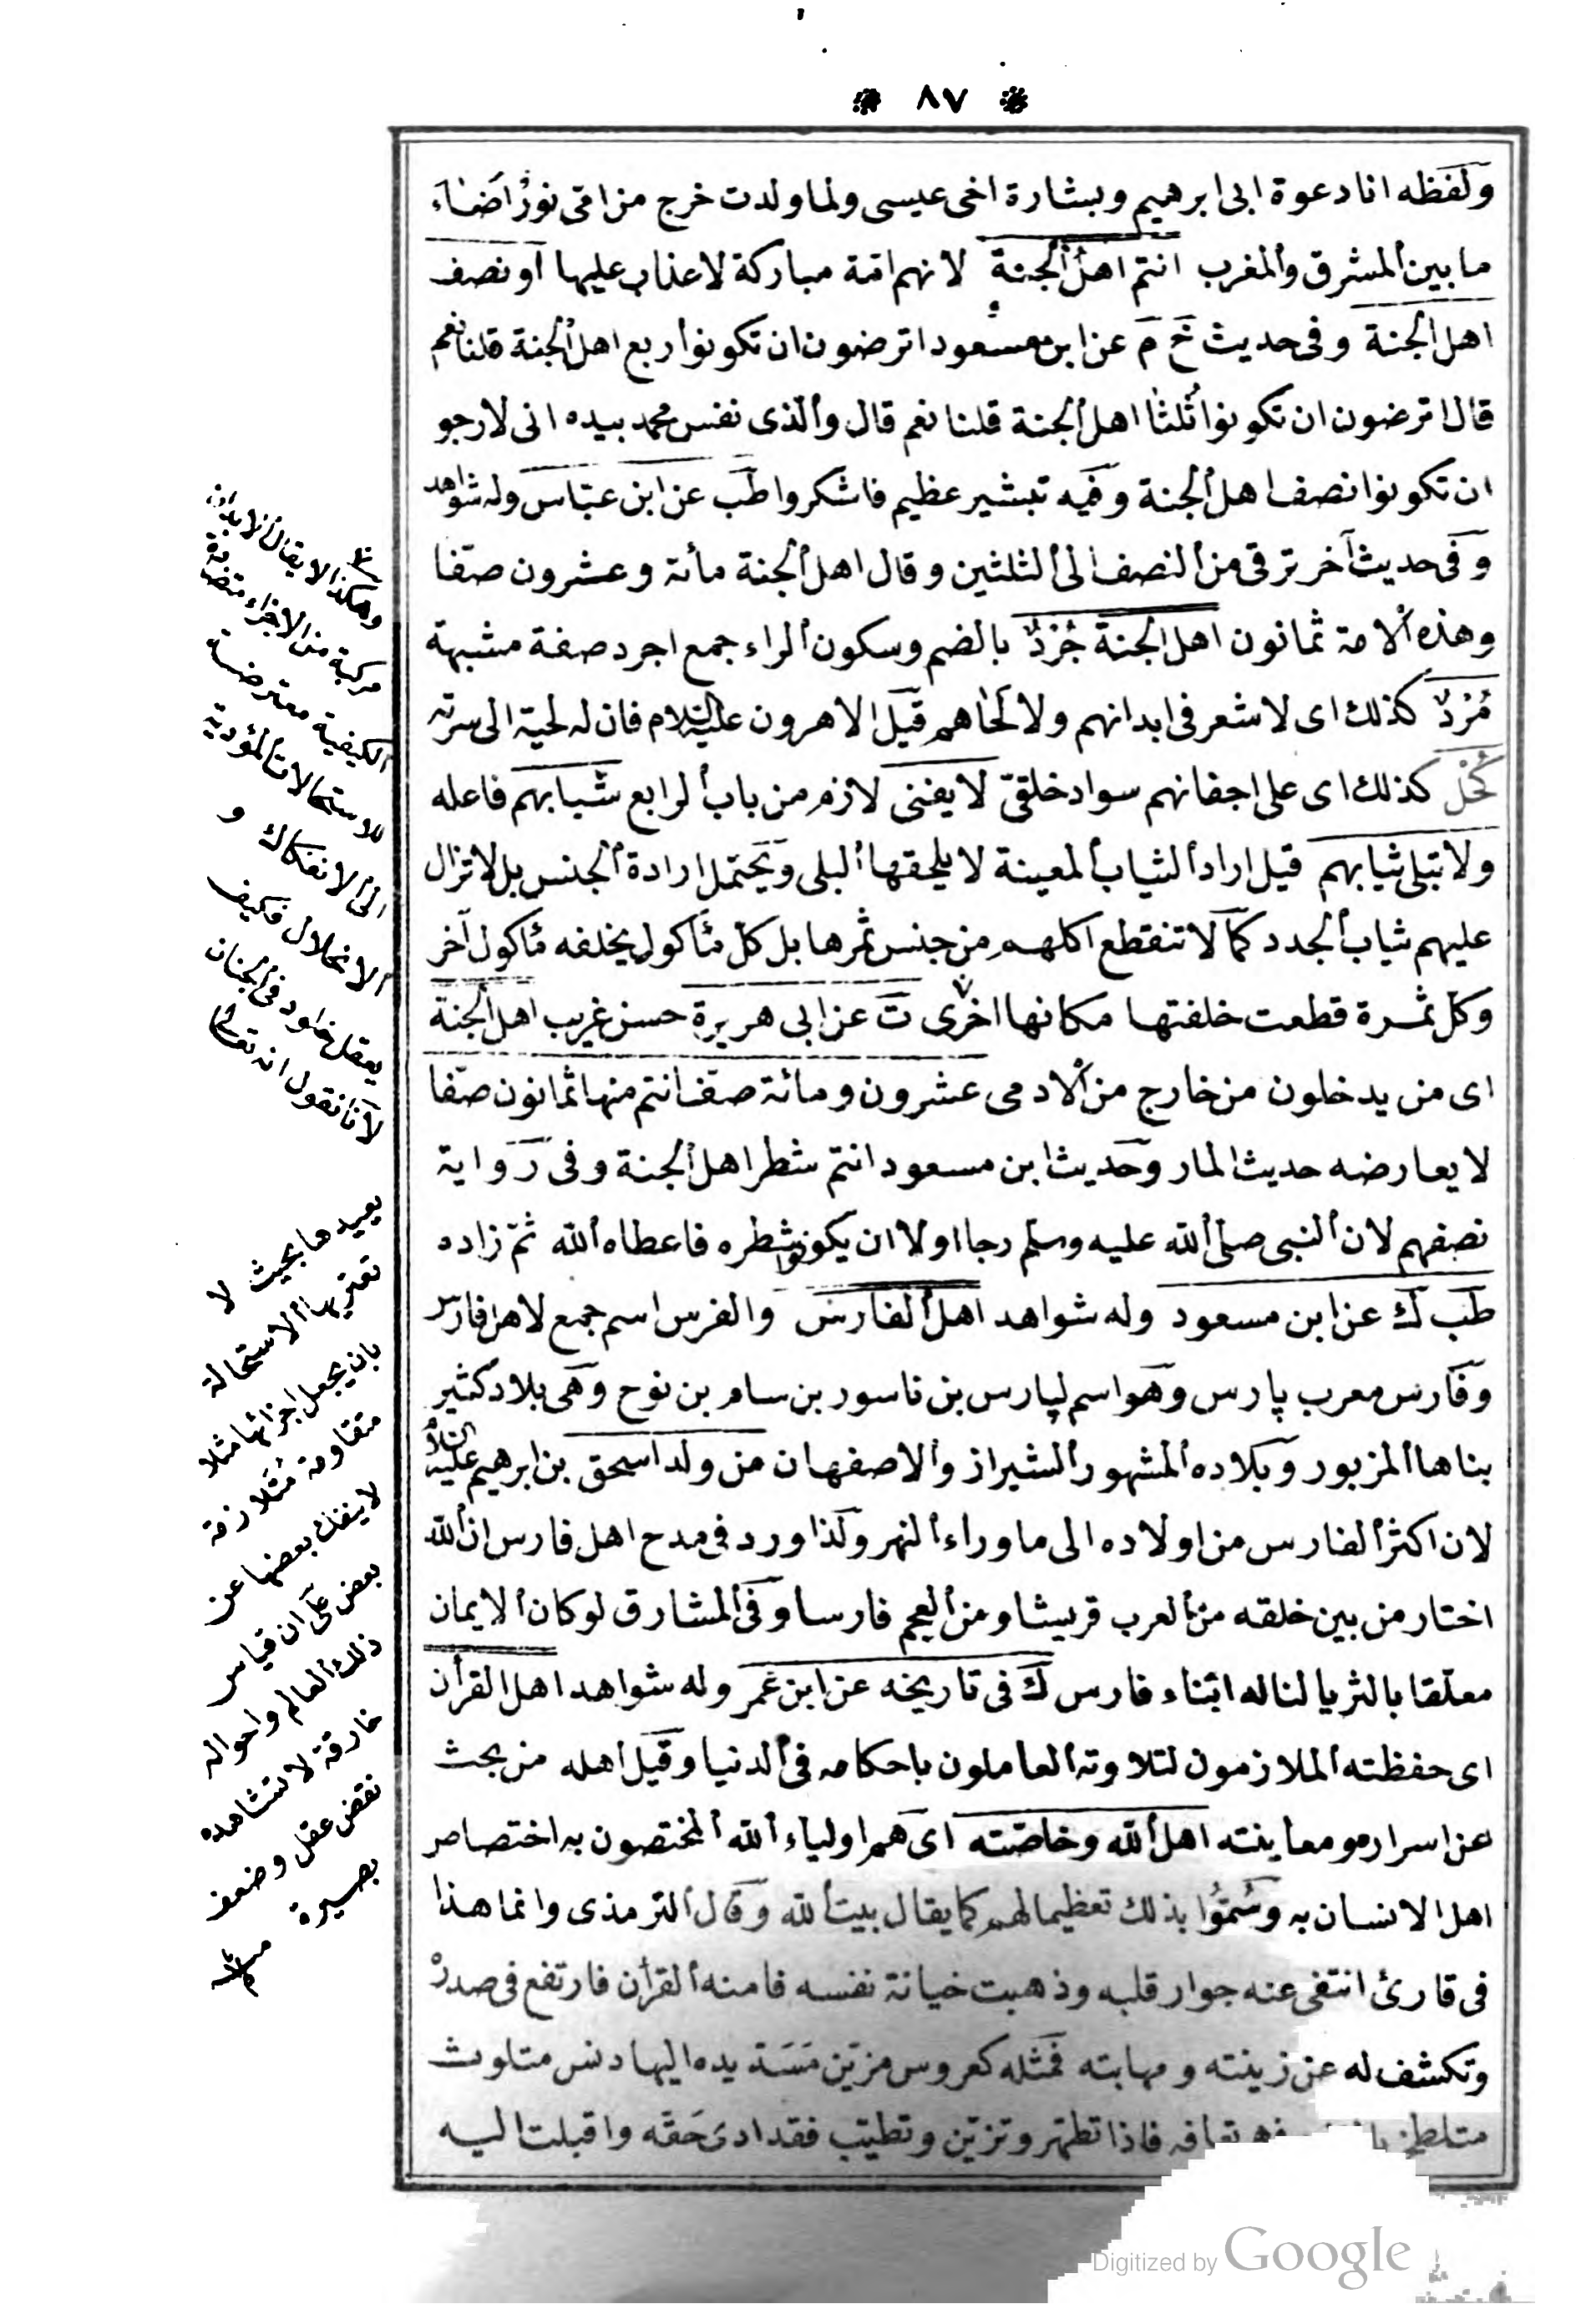 ٨٧
ولفظه انا دعوة ابى ابرهيم وبشارة اخى عيسى ولما ولدت خرج من امى نور اضاء
ما بين المشرق والمغرب انتم اهل الجنة لانهم امة مباركة لا عذاب عليها او نصف
اهل الجنة وفى حديث خ م عن ابن مسعود اترضون ان تكونوا ربع اهل الجنة قلنا نعم
قال اترضون ان تكونوا ثلثا اهل الجنة قلنا نعم قال والذى نفس محمد بيده انى لارجو
ان تكونوا نصف اهل الجنة وفيه تبشير عظيم فاشكروا طب عن ابن عباس وله شواهد
وفى حديث آخر ترقى من النصف الى الثلثين وقال اهل الجنة مأئة وعشرون صفا
وهذه الامة ثمانون اهل الجنة جُرْدٌ بالضم وسكون الراء جمع اجرد صفة مشبهة
مُرْدٌ كذلك اى لا شعر فى ابدانهم ولا لحاهم قيل الا هرون عليه السلام فان له لحية الى سرته
كُحْل كذلك اى على اجفانهم سواد خلقىّ لا يفنى لازم من باب الرابع شبابهم فاعله
ولا تبلى ثيابهم قيل اراد الثياب المعينة لا يلحقها البلى ويحتمل ارادة الجنس بل لا تزال
عليهم ثياب الجدد كما لا تنقطع اكلهم من جنس ثمرها بل كل مأكول يخلفه مأكول آخر
وكل ثمرة قطعت خلفتها مكانها اخرى ت عن ابى هريرة حسن غريب اهل الجنة
اى من يدخلون من خارج من الادمى عشرون ومائة صف انتم منها ثمانون صفا
لا يعارضه حديث المار وحديث ابن مسعود انتم شطر اهل الجنة وفى رواية
نصفهم لان النبى صلى الله عليه وسلم رجا اولا ان يكونوا شطره فاعطاه الله ثم زاده
طب ك عن ابن مسعود وله شواهد اهل الفارس والفرس اسم جمع لاهل فارس
وفارس معرب پارس وهو اسم لپارس بن ناسور بن سام بن نوح وهى بلاد كثير
بناها المزبور وبلاده المشهور الشيراز والاصفهان من ولد اسحق بن ابرهيم عليه السلام
لان اكثر الفارس من اولاده الى ما وراء النهر ولذا ورد فى مدح اهل فارس ان الله
اختار من بين خلقه من العرب قريشا ومن العجم فارسا وفى المشارق لو كان الايمان
معلقا بالثريا لناله ابناء فارس ك فى تاريخه عن ابن عمر وله شواهد اهل القرأن
اى حفظته الملازمون لتلاوته العاملون باحكامه فى الدنيا وقيل اهله من بحث
عن اسراره ومعاينته اهل الله وخاصته اى هم اولياء الله المختصون به اختصاص
اهل الانسان به وسُمّوا بذلك تعظيما لهم كما يقال بيت الله وقال الترمذى وانما هذا
فى قارئ انتفى عنه جوار قلبه وذهبت خيانة نفسه فامنه القرأن فارتفع فى صدره
وتكشف له عن زينته ومهابته فمثله كعروس مزين مَسَّتْ يده اليها دنس متلوث
متلطخ تعافه فاذا تطهر وتزين وتطيب فقد ادى حقه واقبلت اليه
وهكذا لا يقال الابدان
مركبة من الاجزاء متضادة
الكيفية معترضة
للاستحالات المؤدية
الى الانفكاك و
الانحلال فكيف
يعقل خلود فى الجنان
لانا نقول انه تعالى
يعيدها بحيث لا
تعتريها الاستحالة
بان يجعل اجزائها مثلا
متقاومة متلازمة
لا ينفك بعضها عن
بعض على ان قياس
ذلك العالم واحواله
خارقة لا تشاهده
نقص عقل وضعف
بصيرة
Digitized by Google